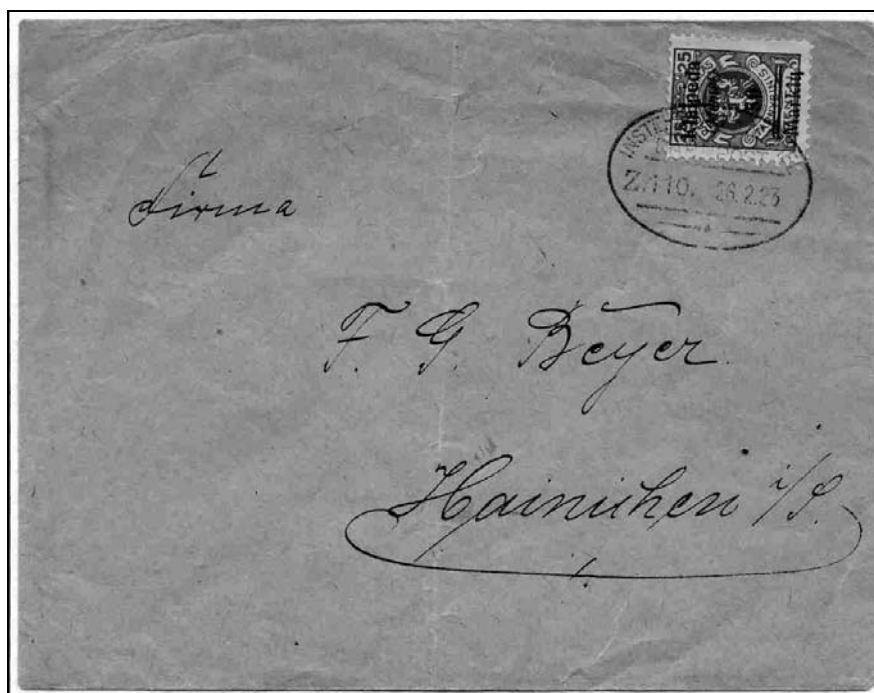 25 25
Klaipeda
INSTE
Z.110. 26.2.23
Firma
F. G. Beyer
Hainichen i/S.